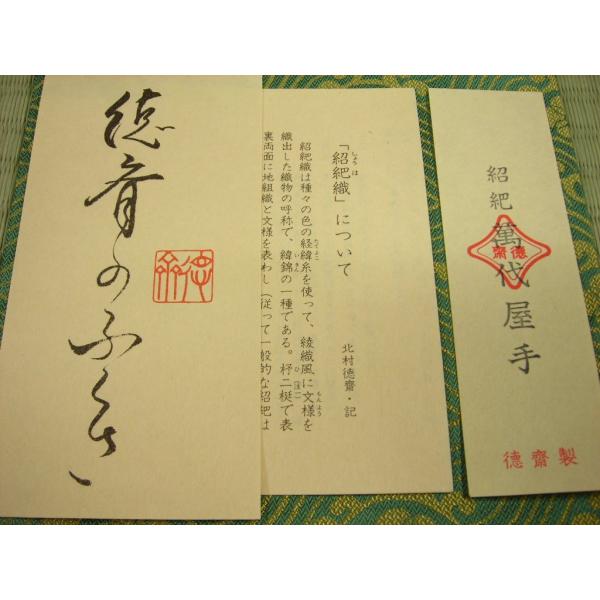 紹紦萬代屋手
德齋
德齋製
「紹紦織」について
北村德齋・記
紹紦織は種々の色の経緯糸を使って、綾織風に文様を
織出した織物の呼称で、緯錦の一種である。杼二梃で表
裏両面に地組織と文様を表わし（従って一般的な紹紦は
徳斎のふくさ